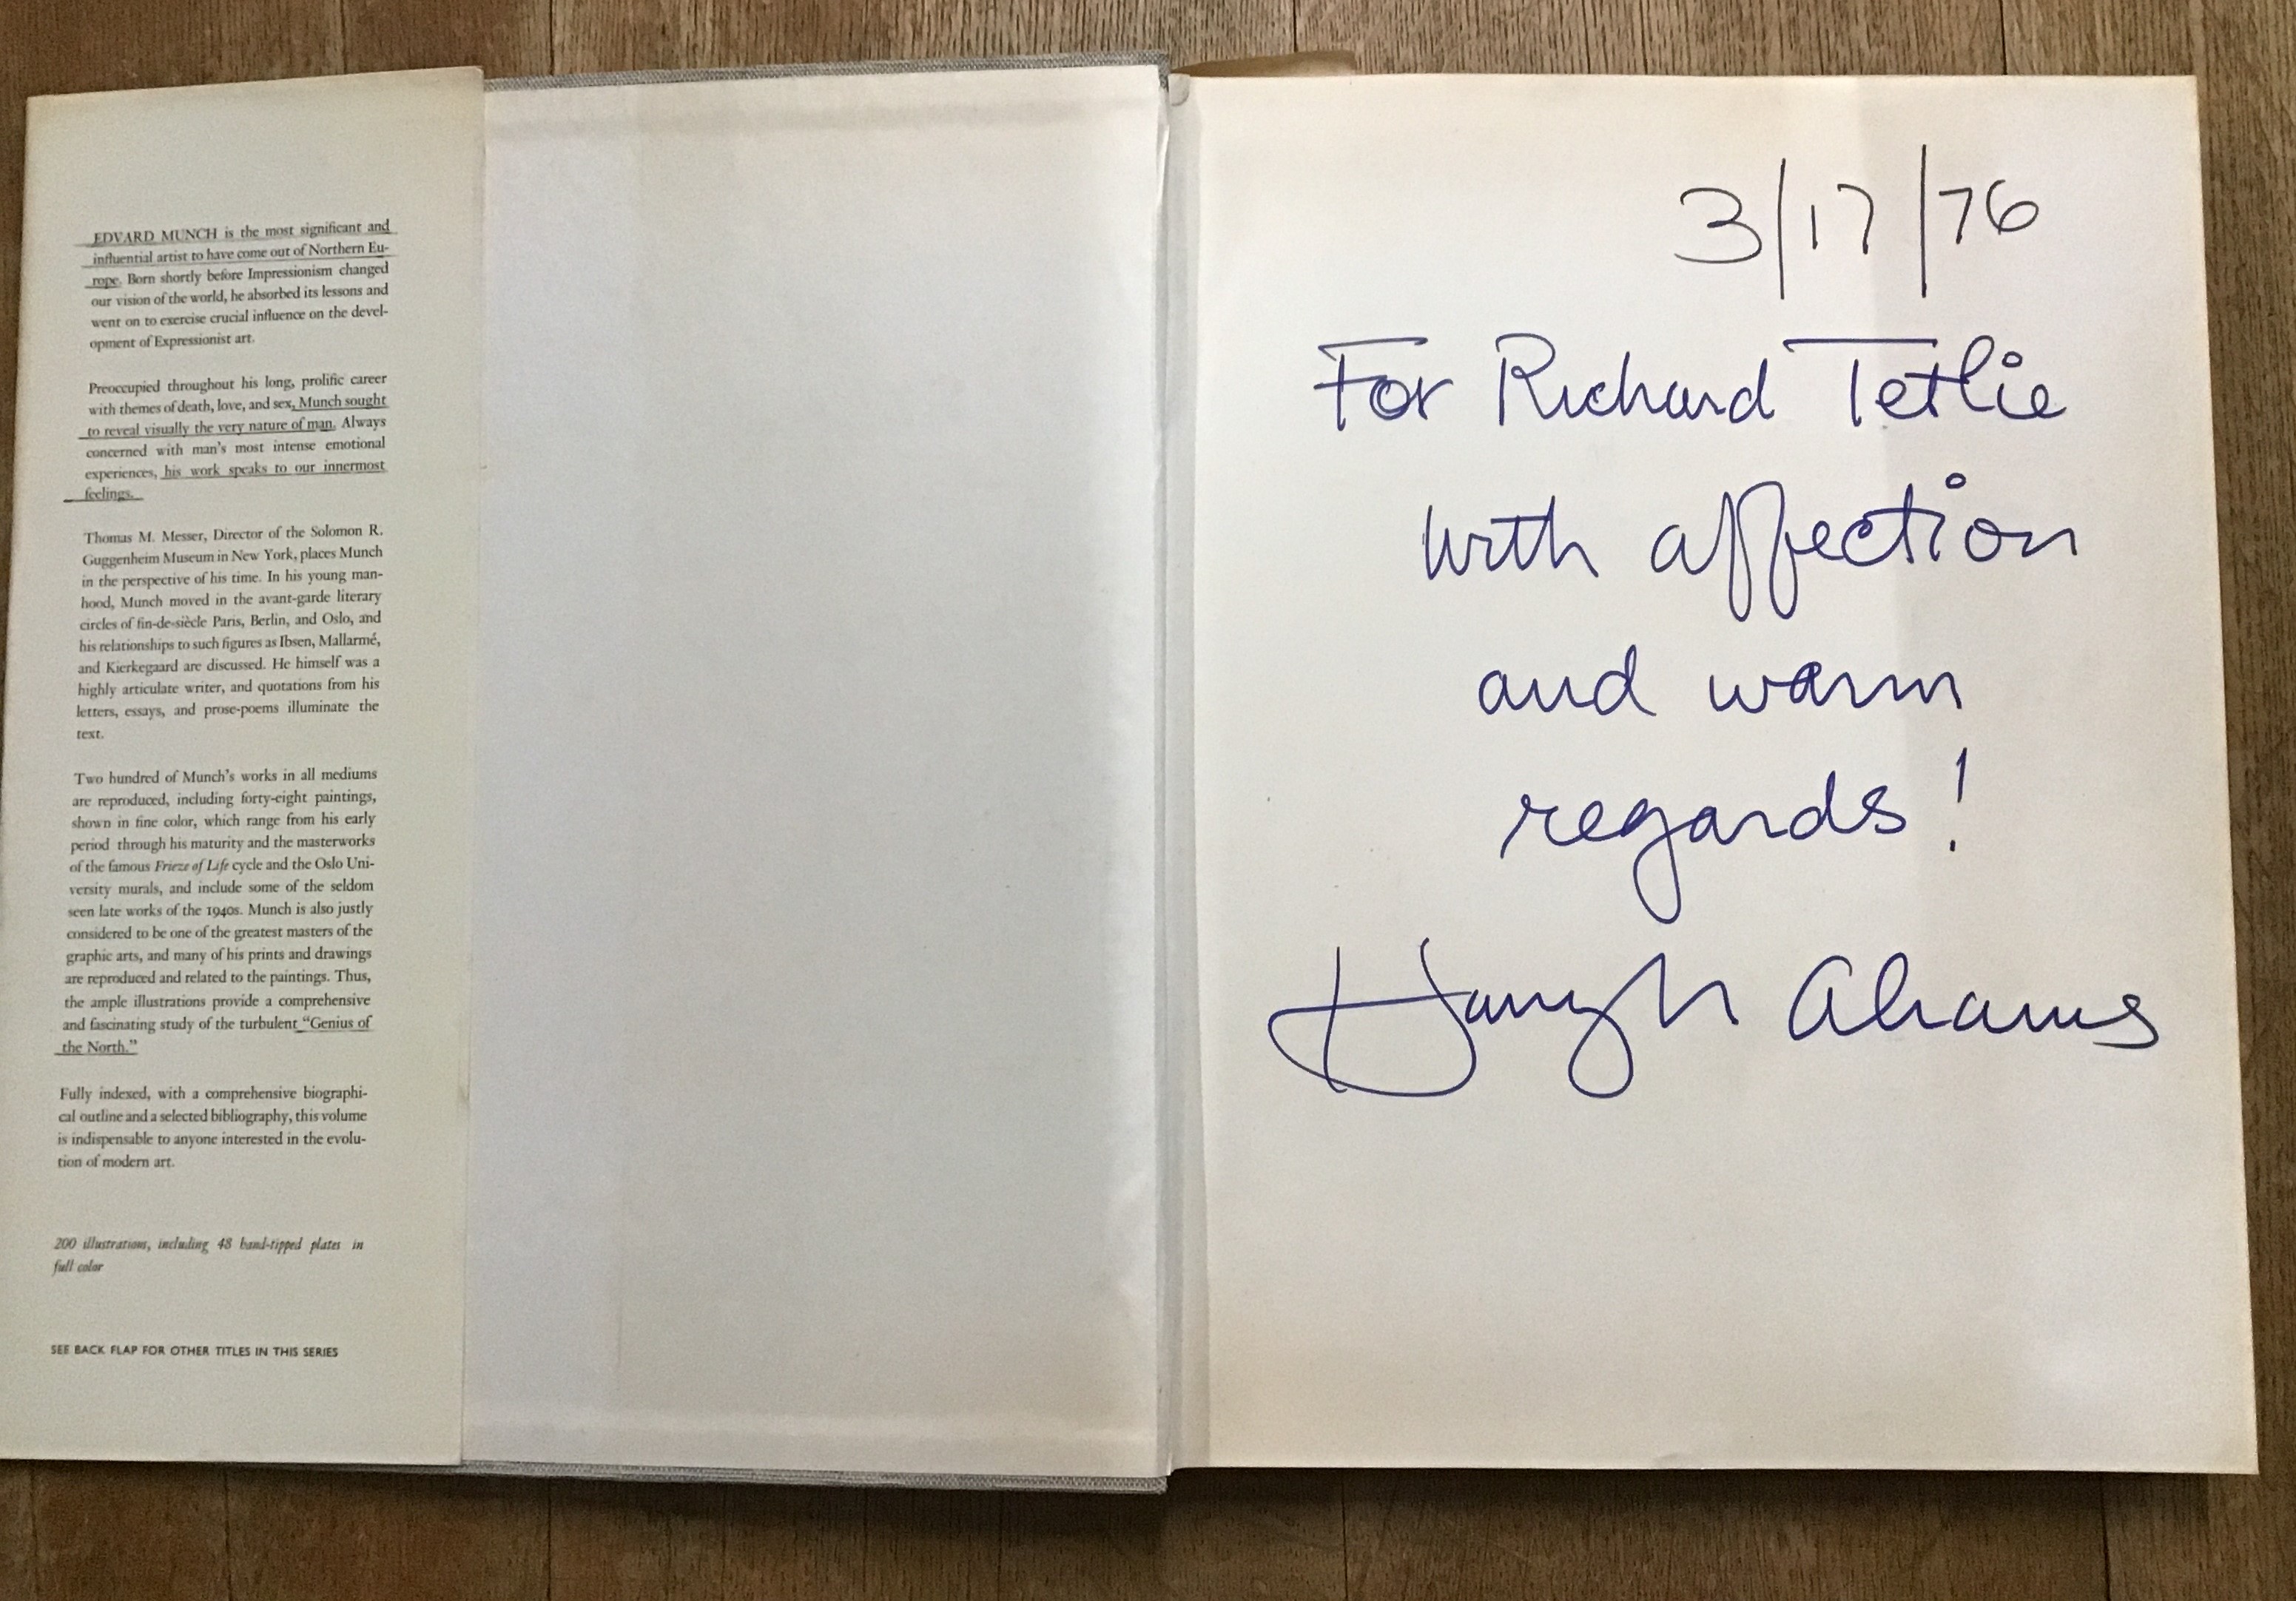 EDVARD MUNCH is the most significant and
influential artist to have come out of Northern Eu-
rope. Born shortly before Impressionism changed
our vision of the world, he absorbed its lessons and
went on to exercise crucial influence on the devel-
opment of Expressionist art.
Preoccupied throughout his long, prolific career
with themes of death, love, and sex, Munch sought
to reveal visually the very nature of man. Always
concerned with man's most intense emotional
experiences, his work speaks to our innermost
feelings.
Thomas M. Messer, Director of the Solomon R.
Guggenheim Museum in New York, places Munch
in the perspective of his time. In his young man-
hood, Munch moved in the avant-garde literary
circles of fin-de-siècle Paris, Berlin, and Oslo, and
his relationships to such figures as Ibsen, Mallarmé,
and Kierkegaard are discussed. He himself was a
highly articulate writer, and quotations from his
letters, essays, and prose-poems illuminate the
text.
Two hundred of Munch's works in all mediums
are reproduced, including forty-eight paintings,
shown in fine color, which range from his early
period through his maturity and the masterworks
of the famous Frieze of Life cycle and the Oslo Uni-
versity murals, and include some of the seldom
seen late works of the 1940s. Munch is also justly
considered to be one of the greatest masters of the
graphic arts, and many of his prints and drawings
are reproduced and related to the paintings. Thus,
the ample illustrations provide a comprehensive
and fascinating study of the turbulent "Genius of
the North."
Fully indexed, with a comprehensive biographi-
cal outline and a selected bibliography, this volume
is indispensable to anyone interested in the evolu-
tion of modern art.
200 illustrations, including 48 hand-tipped plates in
full color
SEE BACK FLAP FOR OTHER TITLES IN THIS SERIES
3/17/76
For Richard Tetlie
with affection
and warm
regards!
Harry N Abrams